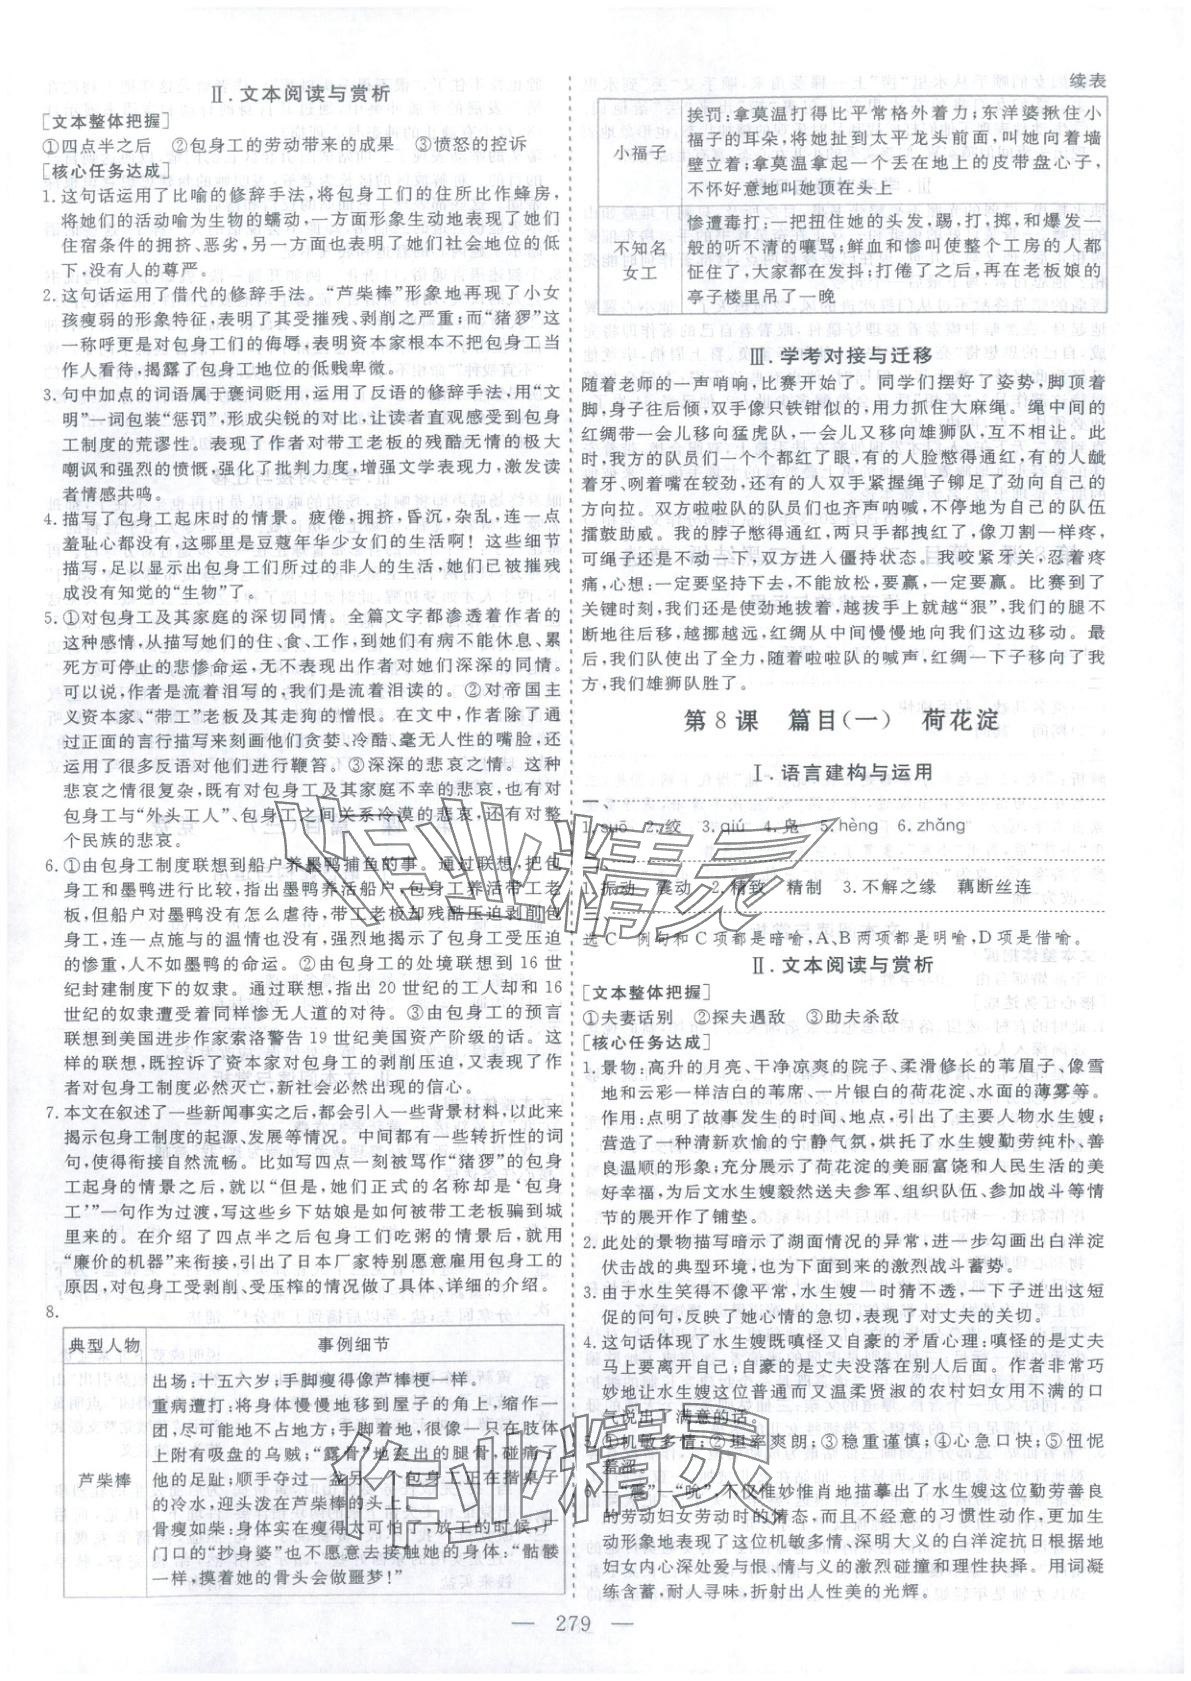 Ⅱ. 文本阅读与赏析
[文本整体把握]
①四点半之后　②包身工的劳动带来的成果　③愤怒的控诉
[核心任务达成]
1. 这句话运用了比喻的修辞手法，将包身工们的住所比作蜂房，
将她们的活动喻为生物的蠕动，一方面形象生动地表现了她们
住宿条件的拥挤、恶劣，另一方面也表明了她们社会地位的低
下，没有人的尊严。
2. 这句话运用了借代的修辞手法。“芦柴棒”形象地再现了小女
孩瘦弱的形象特征，表明了其受摧残、剥削之严重；而“猪猡”这
一称呼更是对包身工们的侮辱，表明资本家根本不把包身工当
作人看待，揭露了包身工地位的低贱卑微。
3. 句中加点的词语属于褒词贬用，运用了反语的修辞手法，用“文
明”一词包装“惩罚”，形成尖锐的对比，让读者直观感受到包身
工制度的荒谬性。表现了作者对带工老板的残酷无情的极大
嘲讽和强烈的愤慨，强化了批判力度，增强文学表现力，激发读
者情感共鸣。
4. 描写了包身工起床时的情景。疲倦，拥挤，昏沉，杂乱，连一点
羞耻心都没有，这哪里是豆蔻年华少女们的生活啊！这些细节
描写，足以显示出包身工们所过的非人的生活，她们已被摧残
成没有知觉的“生物”了。
5. ①对包身工及其家庭的深切同情。全篇文字都渗透着作者的
这种感情，从描写她们的住、食、工作，到她们有病不能休息、累
死方可停止的悲惨命运，无不表现出作者对她们深深的同情。
可以说，作者是流着泪写的，我们是流着泪读的。②对帝国主
义资本家、“带工”老板及其走狗的憎恨。在文中，作者除了通
过正面的言行描写来刻画他们贪婪、冷酷、毫无人性的嘴脸，还
运用了很多反语对他们进行鞭笞。③深深的悲哀之情。这种
悲哀之情很复杂，既有对包身工及其家庭不幸的悲哀，也有对
包身工与“外头工人”之间关系冷漠的悲哀，还有对整
个民族的悲哀。
6. ①由包身工制度联想到船户养墨鸭捕鱼的事。通过联想，把包
身工和墨鸭进行比较，指出墨鸭养活船户，包身工养活带工老
板，但船户对墨鸭没有怎么虐待，带工老板却残酷压迫剥削包
身工，连一点施与的温情也没有，强烈地揭示了包身工受压迫
的惨重，人不如墨鸭的命运。②由包身工的处境联想到 16 世
纪封建制度下的奴隶。通过联想，指出 20 世纪的工人却和 16
世纪的奴隶遭受着同样悲惨无人道的对待。③由包身工的预言
联想到美国进步作家索洛警告 19 世纪美国资产阶级的话。这
样的联想，既控诉了资本家对包身工的剥削压迫，又表现了作
者对包身工制度必然灭亡，新社会必然出现的信心。
7. 本文在叙述了一些新闻事实之后，都会引入一些背景材料，以此来
揭示包身工制度的起源、发展等情况。中间都有一些转折性的词
句，使得衔接自然流畅。比如写四点一刻被骂作“猪猡”的包身工
起身的情景之后，就以“但是，她们正式的名称却是‘包身
工’”一句作为过渡，写这些乡下姑娘是如何被带工老板骗到城
里来的。在介绍了四点半之后包身工们吃粥的情景后，就用
“廉价的机器”来衔接，引出了日本厂家特别愿意雇用包身工的
原因，对包身工受剥削、受压榨的情况做了具体、详细的介绍。
8.
典型人物　事例细节
芦柴棒
出场：十五六岁；手脚瘦得像芦柴梗一样。
重病遭打；将身体慢慢地移到屋子的角上，缩作一
团，尽可能地不占地方；手脚着地，很像一只在肢体
上附有吸盘的乌贼；“露骨”地突出的腿骨，碰痛了
他的足趾；顺手夺过一盆另一个包身工正在揩桌子
的冷水，迎头泼在芦柴棒的头上。
骨瘦如柴：身体实在瘦得太可怕了，放工的时候，厂
门口的“抄身婆”也不愿意去接触她的身体：“骷髅
一样，摸着她的骨头会做噩梦！”
续表
小福子
挨罚：拿莫温打得比平常格外着力；东洋婆揪住小
福子的耳朵，将她扯到太平龙头前面，叫她向着墙
壁立着；拿莫温拿起一个丢在地上的皮带盘心子，
不怀好意地叫她顶在头上
不知名
女工
惨遭毒打：一把扭住她的头发，踢，打，掷，和爆发一
般的听不清的嚷骂；鲜血和惨叫使整个工房的人都
怔住了，大家都在发抖；打倦了之后，再在老板娘的
亭子楼里吊了一晚
Ⅲ. 学考对接与迁移
随着老师的一声哨响，比赛开始了。同学们摆好了姿势，脚顶着
脚，身子往后倾，双手像只铁钳似的，用力抓住大麻绳。绳中间的
红绸带一会儿移向猛虎队，一会儿又移向雄狮队，互不相让。这
时，我方的队员们一个个都红了眼，有的人脸憋得通红，有的人龇
着牙、咧着嘴在较劲，还有的人双手紧握绳子铆足了劲向自己的
方向拉。双方啦啦队的队员们也齐声呐喊，不停地为自己的队伍
擂鼓助威。我的脖子憋得通红，一只只手都拽红了，像刀割一样疼，
可绳子还是不动一下，两方进入僵持状态。我咬紧牙关，忍着疼
痛，心想：一定要坚持下去，不能放松，要赢，一定要赢。比赛到了
关键时刻，我们还是使劲地拔着，越拔手上就越“狠”，我们的腿不
断地往后移，越挪越远，红绸从中间慢慢地向我们这边移动。最
后，我们队使出了全力，随着啦啦队的喊声，红绸一下子移向了我
方，我们雄狮队胜了。
第 8 课　篇目(一)　荷花淀
Ⅰ. 语言建构与运用
一、
1. suō　2. 绞　3. qiú　4. 凫　5. hèng　6. zhǎng
二、
1. 振动　震动　2. 精致　精制　3. 不解之缘　藕断丝连
三、
选 C　例句和 C 项都是暗喻，A、B 两项都是明喻，D 项是借喻。
Ⅱ. 文本阅读与赏析
[文本整体把握]
①夫妻话别　②探夫遇敌　③助夫杀敌
[核心任务达成]
1. 景物：高升的月亮、干净凉爽的院子、柔滑修长的苇眉子、像雪
地和云彩一样洁白的苇席、一片银白的荷花淀、水面的薄雾等。
作用：点明了故事发生的时间、地点，引出了主要人物水生嫂；
营造了一种清新欢愉的宁静气氛，烘托了水生嫂勤劳纯朴、善
良温顺的形象；充分展示了荷花淀的美丽富饶和人民生活的美
好幸福，为后文水生嫂毅然送夫参军、组织队伍、参加战斗等情
节的展开作了铺垫。
2. 此处的景物描写暗示了湖面情况的异常，进一步勾画出白洋淀
伏击战的典型环境，也为下面到来的激烈战斗蓄势。
3. 由于水生笑得不像平常，水生嫂一时猜不透，一下子迸出这短
促的问句，反映了她心情的急切，表现了对丈夫的关切。
4. 这句话体现了水生嫂既嗔怪又自豪的矛盾心理：嗔怪的是丈夫
马上要离开自己；自豪的是丈夫没落在别人后面。作者非常巧
妙地让水生嫂这位普通而又温柔贤淑的农村妇女用不满的口
气说出了满意的话。
5. ①机敏多情；②坦率爽朗；③稳重谨慎；④心急口快；⑤忸怩
羞涩。
6. 一“震”一“吮”，不仅惟妙惟肖地描摹出了水生嫂这位勤劳善良
的劳动妇女劳动时的情态，而且不经意的习惯性动作，更加生
动形象地表现了这位机敏多情、深明大义的白洋淀抗日根据地
妇女内心深处爱与恨、情与义的激烈碰撞和理性抉择。用词凝
练含蓄，耐人寻味，折射出人性美的光辉。
— 279 —
作业精灵
作业精灵